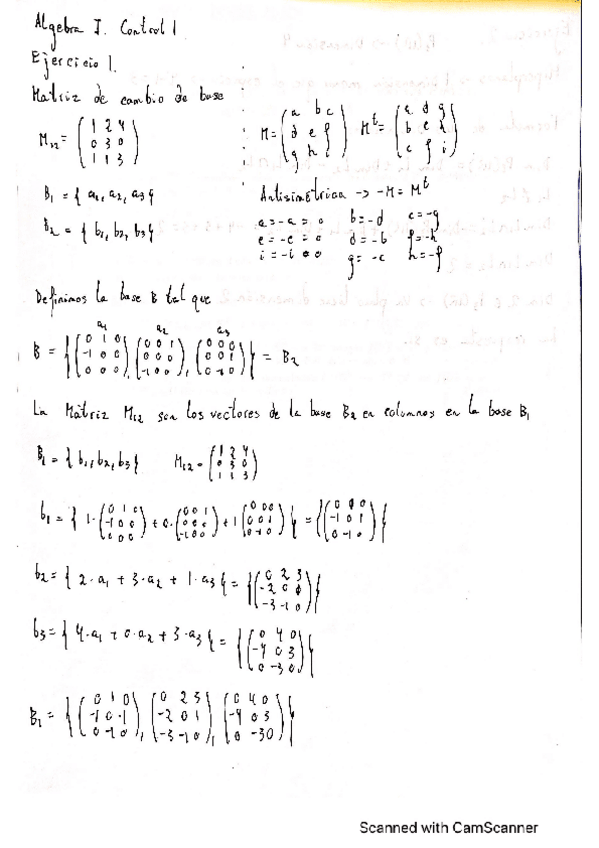 Algebra I. Control 1
Ejercicio 1.
Matriz de cambio de base
M₁₂ = ( 1 2 4 / 0 3 0 / 1 1 3 )
B₁ = { a₁, a₂, a₃ }
B₂ = { b₁, b₂, b₃ }
M = ( a b c / d e f / g h i ) Mᵗ = ( a d g / b e h / c f i )
Antisimétrica -> -M = Mᵗ
a = -a = 0 b = -d c = -g
e = -e = 0 d = -b f = -h
i = -i = 0 g = -c h = -f
Definimos la base B tal que
a₁ a₂ a₃
B = { ( 0 1 0 / -1 0 0 / 0 0 0 ), ( 0 0 1 / 0 0 0 / -1 0 0 ), ( 0 0 0 / 0 0 1 / 0 -1 0 ) } = B₂
La Matriz M₁₂ son los vectores de la base B₂ en columnas en la base B₁
B₁ = { b₁, b₂, b₃ } M₁₂ = ( 1 2 4 / 0 3 0 / 1 1 3 )
b₁ = { 1· ( 0 1 0 / -1 0 0 / 0 0 0 ) + 0· ( 0 0 1 / 0 0 0 / -1 0 0 ) + 1 ( 0 0 0 / 0 0 1 / 0 -1 0 ) } =
b₂ = { 2·a₁ + 3·a₂ + 1·a₃ } = { ( 0 2 3 / -2 0 / -3 -1 0 ) }
b₃ = { 4·a₁ + 0·a₂ + 3·a₃ } = { ( 0 4 0 / -4 0 3 / 0 -3 0 ) }
B₁ = { ( 0 1 0 / -1 0 -1 / 0 -1 0 ), ( 0 2 3 / -2 0 1 / -3 -1 0 ), ( 0 4 0 / -4 0 3 / 0 -3 0 ) }
Scanned with CamScanner